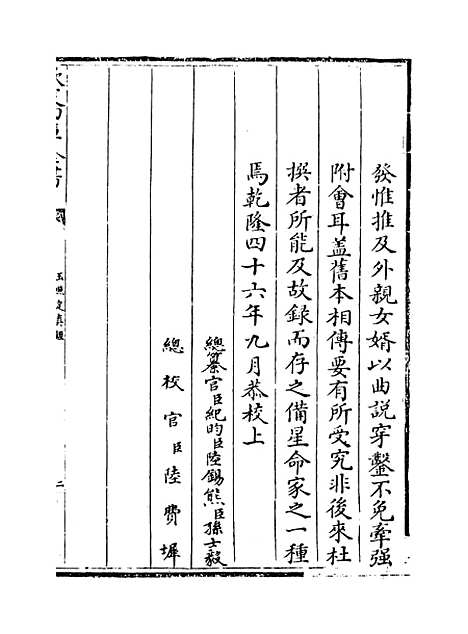 發惟推及外親女婿以曲說穿鑿不免牽强
附會耳盖舊本相傳要有所受究非後來杜
撰者所能及故録而存之備星命家之一種
焉乾隆四十六年九月恭校上
總纂官臣紀昀臣陸錫熊臣孫士毅
總校官臣陸費墀
玉照定真經
二